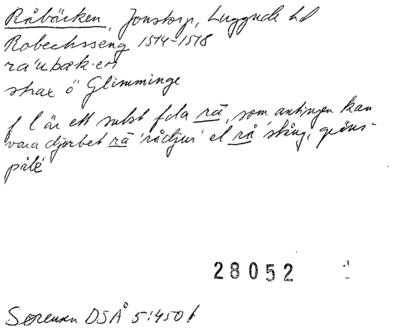 Råbäcken, Jonstorp, Luggude hd
Robechsseng 1514-1518
ra'ubæk·en
strax ö Glimminge
f l är ett subst fda rā, som antingen kan
vara djurbet rā 'rådjur' el rå 'stång, gräns-
påle'
28052
Sørensen DSÅ 5:450 f